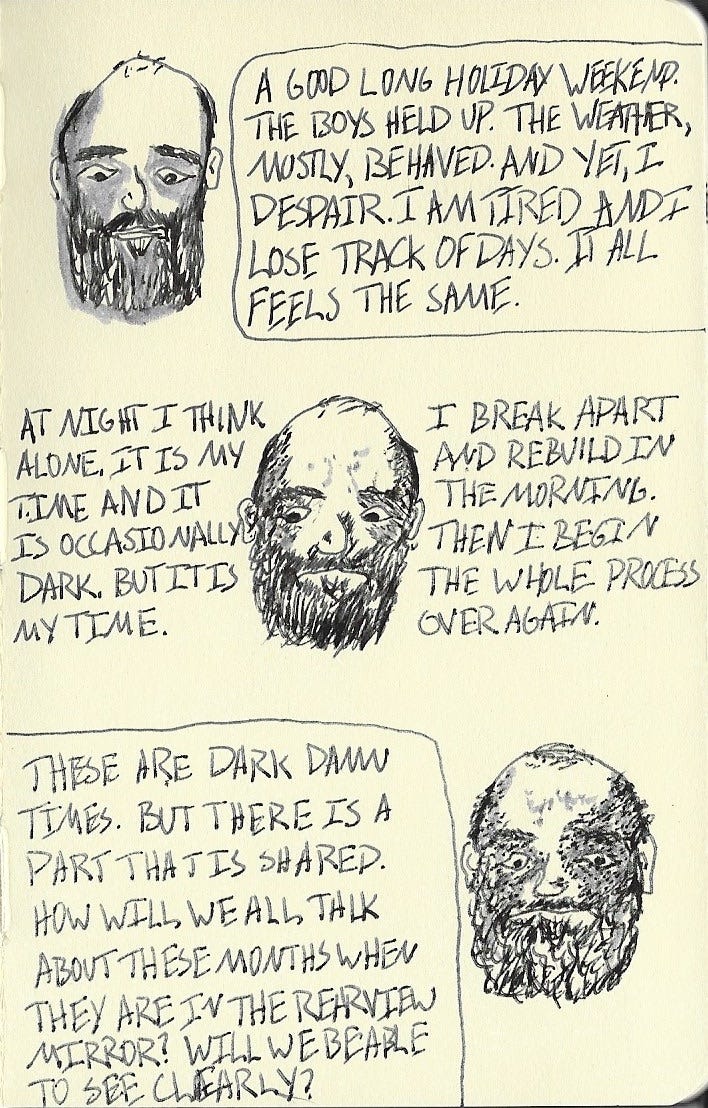 A GOOD LONG HOLIDAY WEEKEND.
THE BOYS HELD UP. THE WEATHER,
MOSTLY, BEHAVED. AND YET, I
DESPAIR. I AM TIRED AND I
LOSE TRACK OF DAYS. IT ALL
FEELS THE SAME.
AT NIGHT I THINK
ALONE. IT IS MY
TIME AND IT
IS OCCASIONALLY
DARK. BUT IT IS
MY TIME.
I BREAK APART
AND REBUILD IN
THE MORNING.
THEN I BEGIN
THE WHOLE PROCESS
OVER AGAIN.
THESE ARE DARK DAMN
TIMES. BUT THERE IS A
PART THAT IS SHARED.
HOW WILL WE ALL TALK
ABOUT THESE MONTHS WHEN
THEY ARE IN THE REARVIEW
MIRROR? WILL WE BE ABLE
TO SEE CLEARLY?